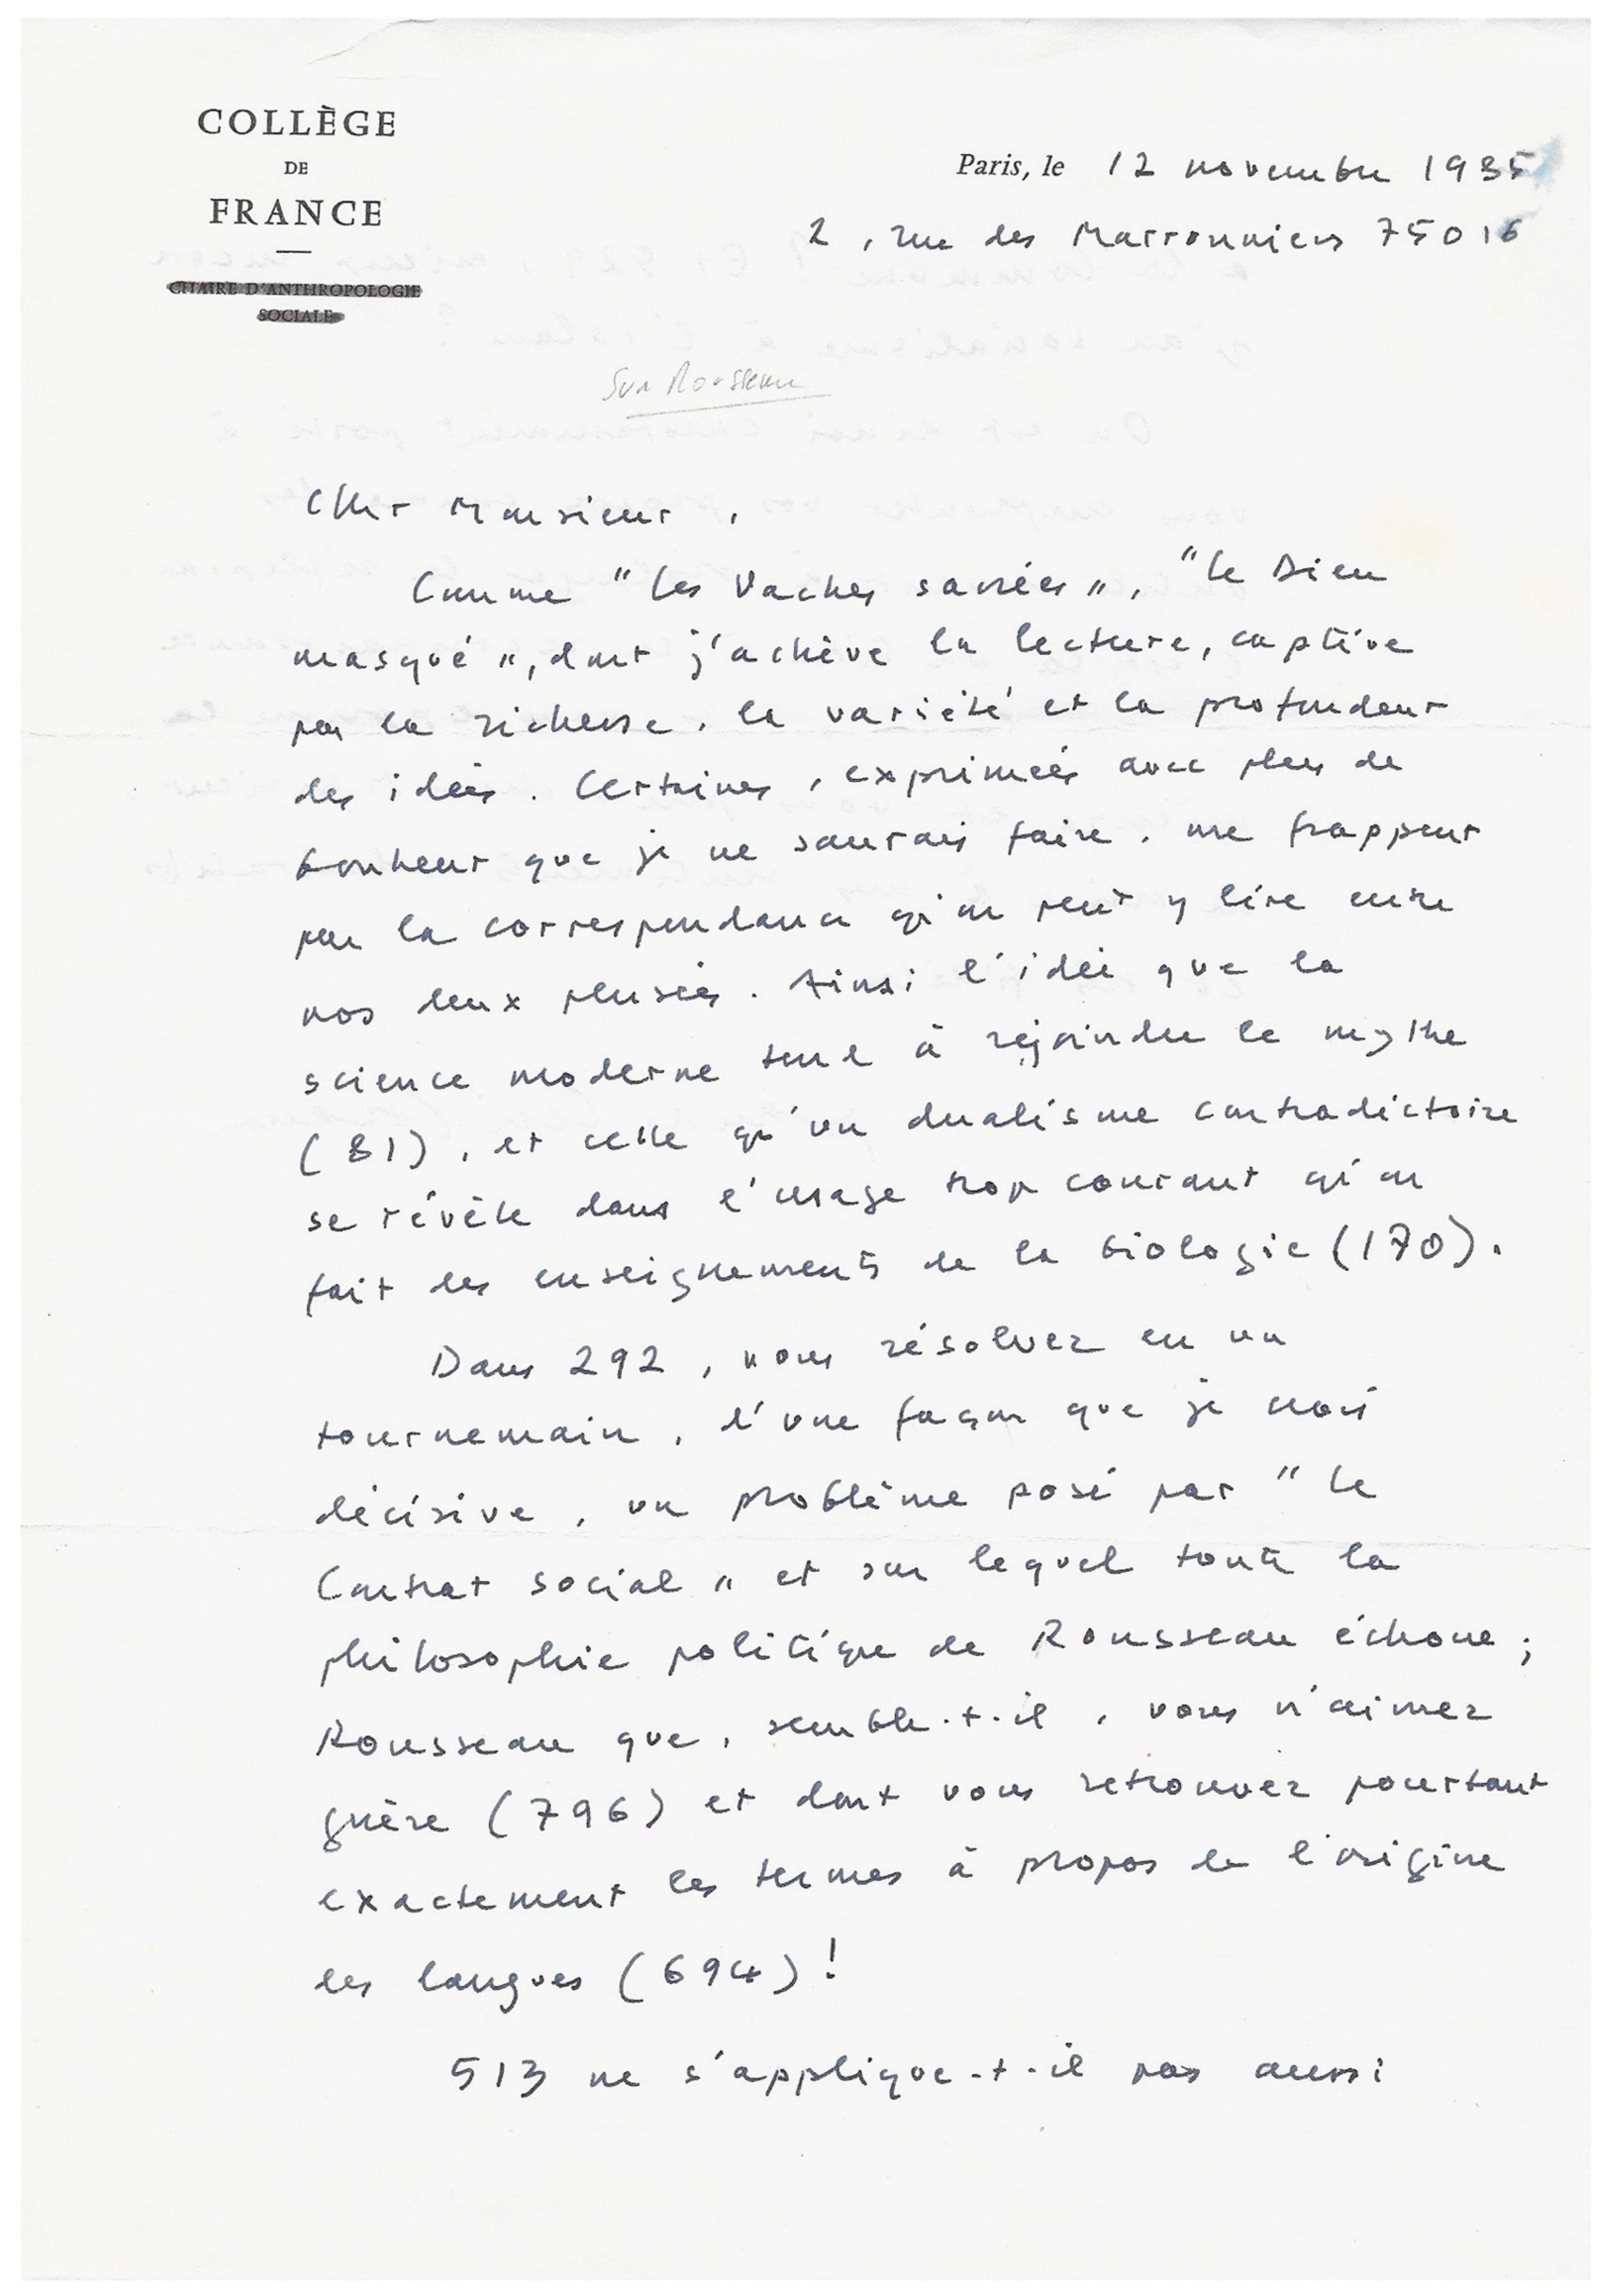 COLLÈGE
DE
FRANCE
CHAIRE D'ANTHROPOLOGIE
SOCIALE
Paris, le 12 novembre 1985
2, rue des Marronniers 75016
Sur Rousseau
Cher Monsieur,
Comme "Les Vaches sacrées", "le Dieu
masqué", dont j'achève la lecture, captive
par la richesse, la variété et la profondeur
des idées. Certaines, exprimées avec plus de
bonheur que je ne saurais faire, me frappent
par la correspondance qu'on peut y lire entre
nos deux pensées. Ainsi l'idée que la
science moderne tend à rejoindre le mythe
(81), et celle qu'un dualisme contradictoire
se révèle dans l'usage trop courant qu'on
fait des enseignements de la biologie (170).
Dans 292, vous résolvez en un
tournemain, d'une façon que je crois
décisive, un problème posé par "le
Contrat social" et sur lequel toute la
philosophie politique de Rousseau échoue ;
Rousseau que, semble-t-il, vous n'aimez
guère (796) et dont vous retrouvez pourtant
exactement les termes à propos de l'origine
des langues (694) !
513 ne s'applique-t-il pas aussi